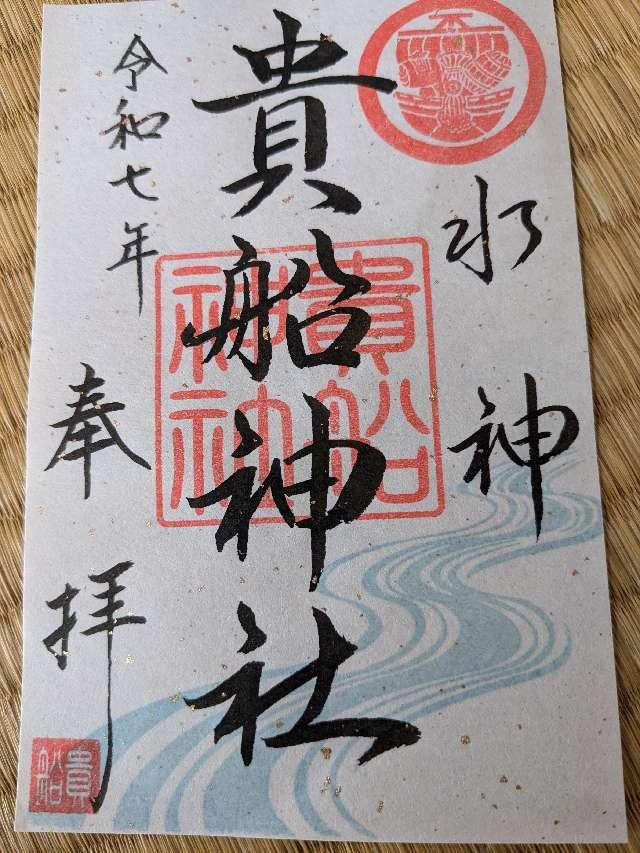 水神
貴船神社
令和七年
奉拝
貴船神社
貴船